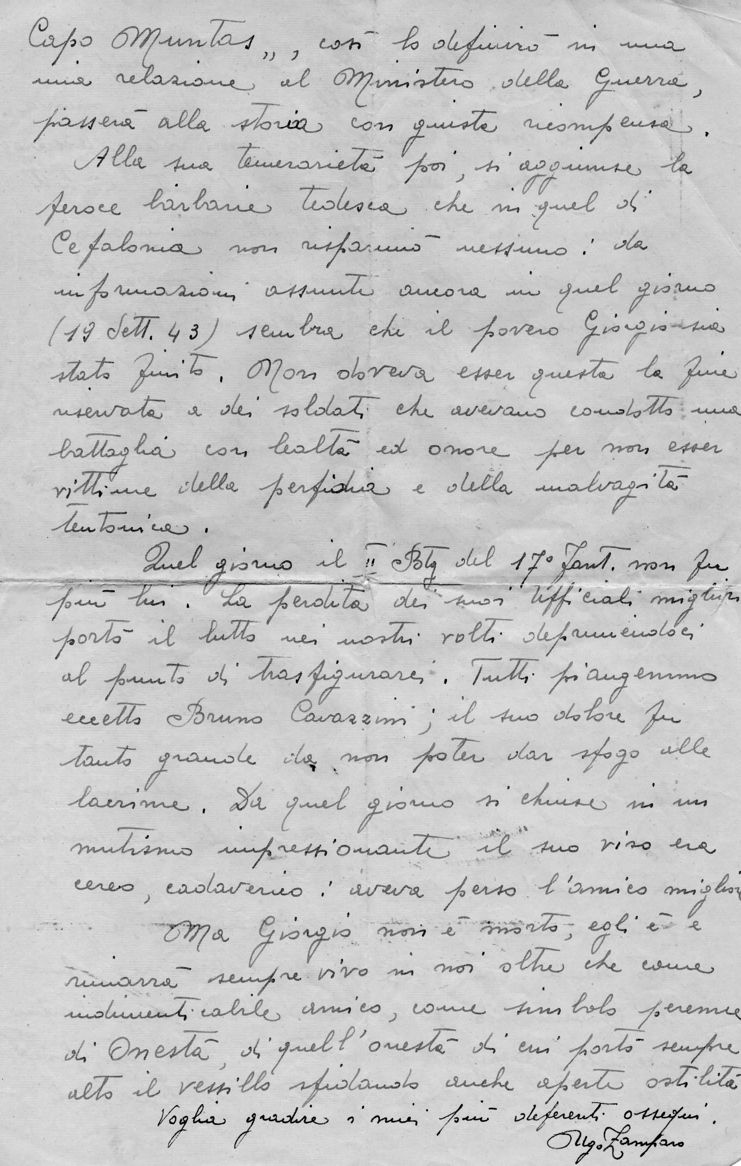 Capo Muntas,,, così lo definirò in una
mia relazione al Ministero della Guerra,
passerà alla storia con giusta ricompensa.
Alla sua temerarietà poi, si aggiunse la
feroce barbarie tedesca che in quel di
Cefalonia non risparmiò nessuno: da
informazioni assunte ancora in quel giorno
(19 Sett. 43) sembra che il povero Giorgio sia
stato finito. Non doveva esser questa la fine
riservata a dei soldati che avevano condotto una
battaglia con lealtà ed onore per non esser
vittime della perfidia e della malvagità
teutonica.
Quel giorno il II Btg del 17° Fant. non fu
più lui. La perdita dei suoi Ufficiali migliori
portò il lutto nei nostri volti deprimendoci
al punto di trasfigurarci. Tutti piangemmo
eccetto Bruno Cavazzini; il suo dolore fu
tanto grande da non poter dar sfogo alle
lacrime. Da quel giorno si chiuse in un
mutismo impressionante il suo viso era
cereo, cadaverico: aveva perso l'amico migliore
Ma Giorgio non è morto, egli è e
rimarrà sempre vivo in noi oltre che come
indimenticabile amico, come simbolo perenne
di Onestà, di quell'onestà di cui portò sempre
alto il vessillo sfidando anche aperte ostilità
Voglia gradire i miei più deferenti ossequi.
Ugo Zamparo